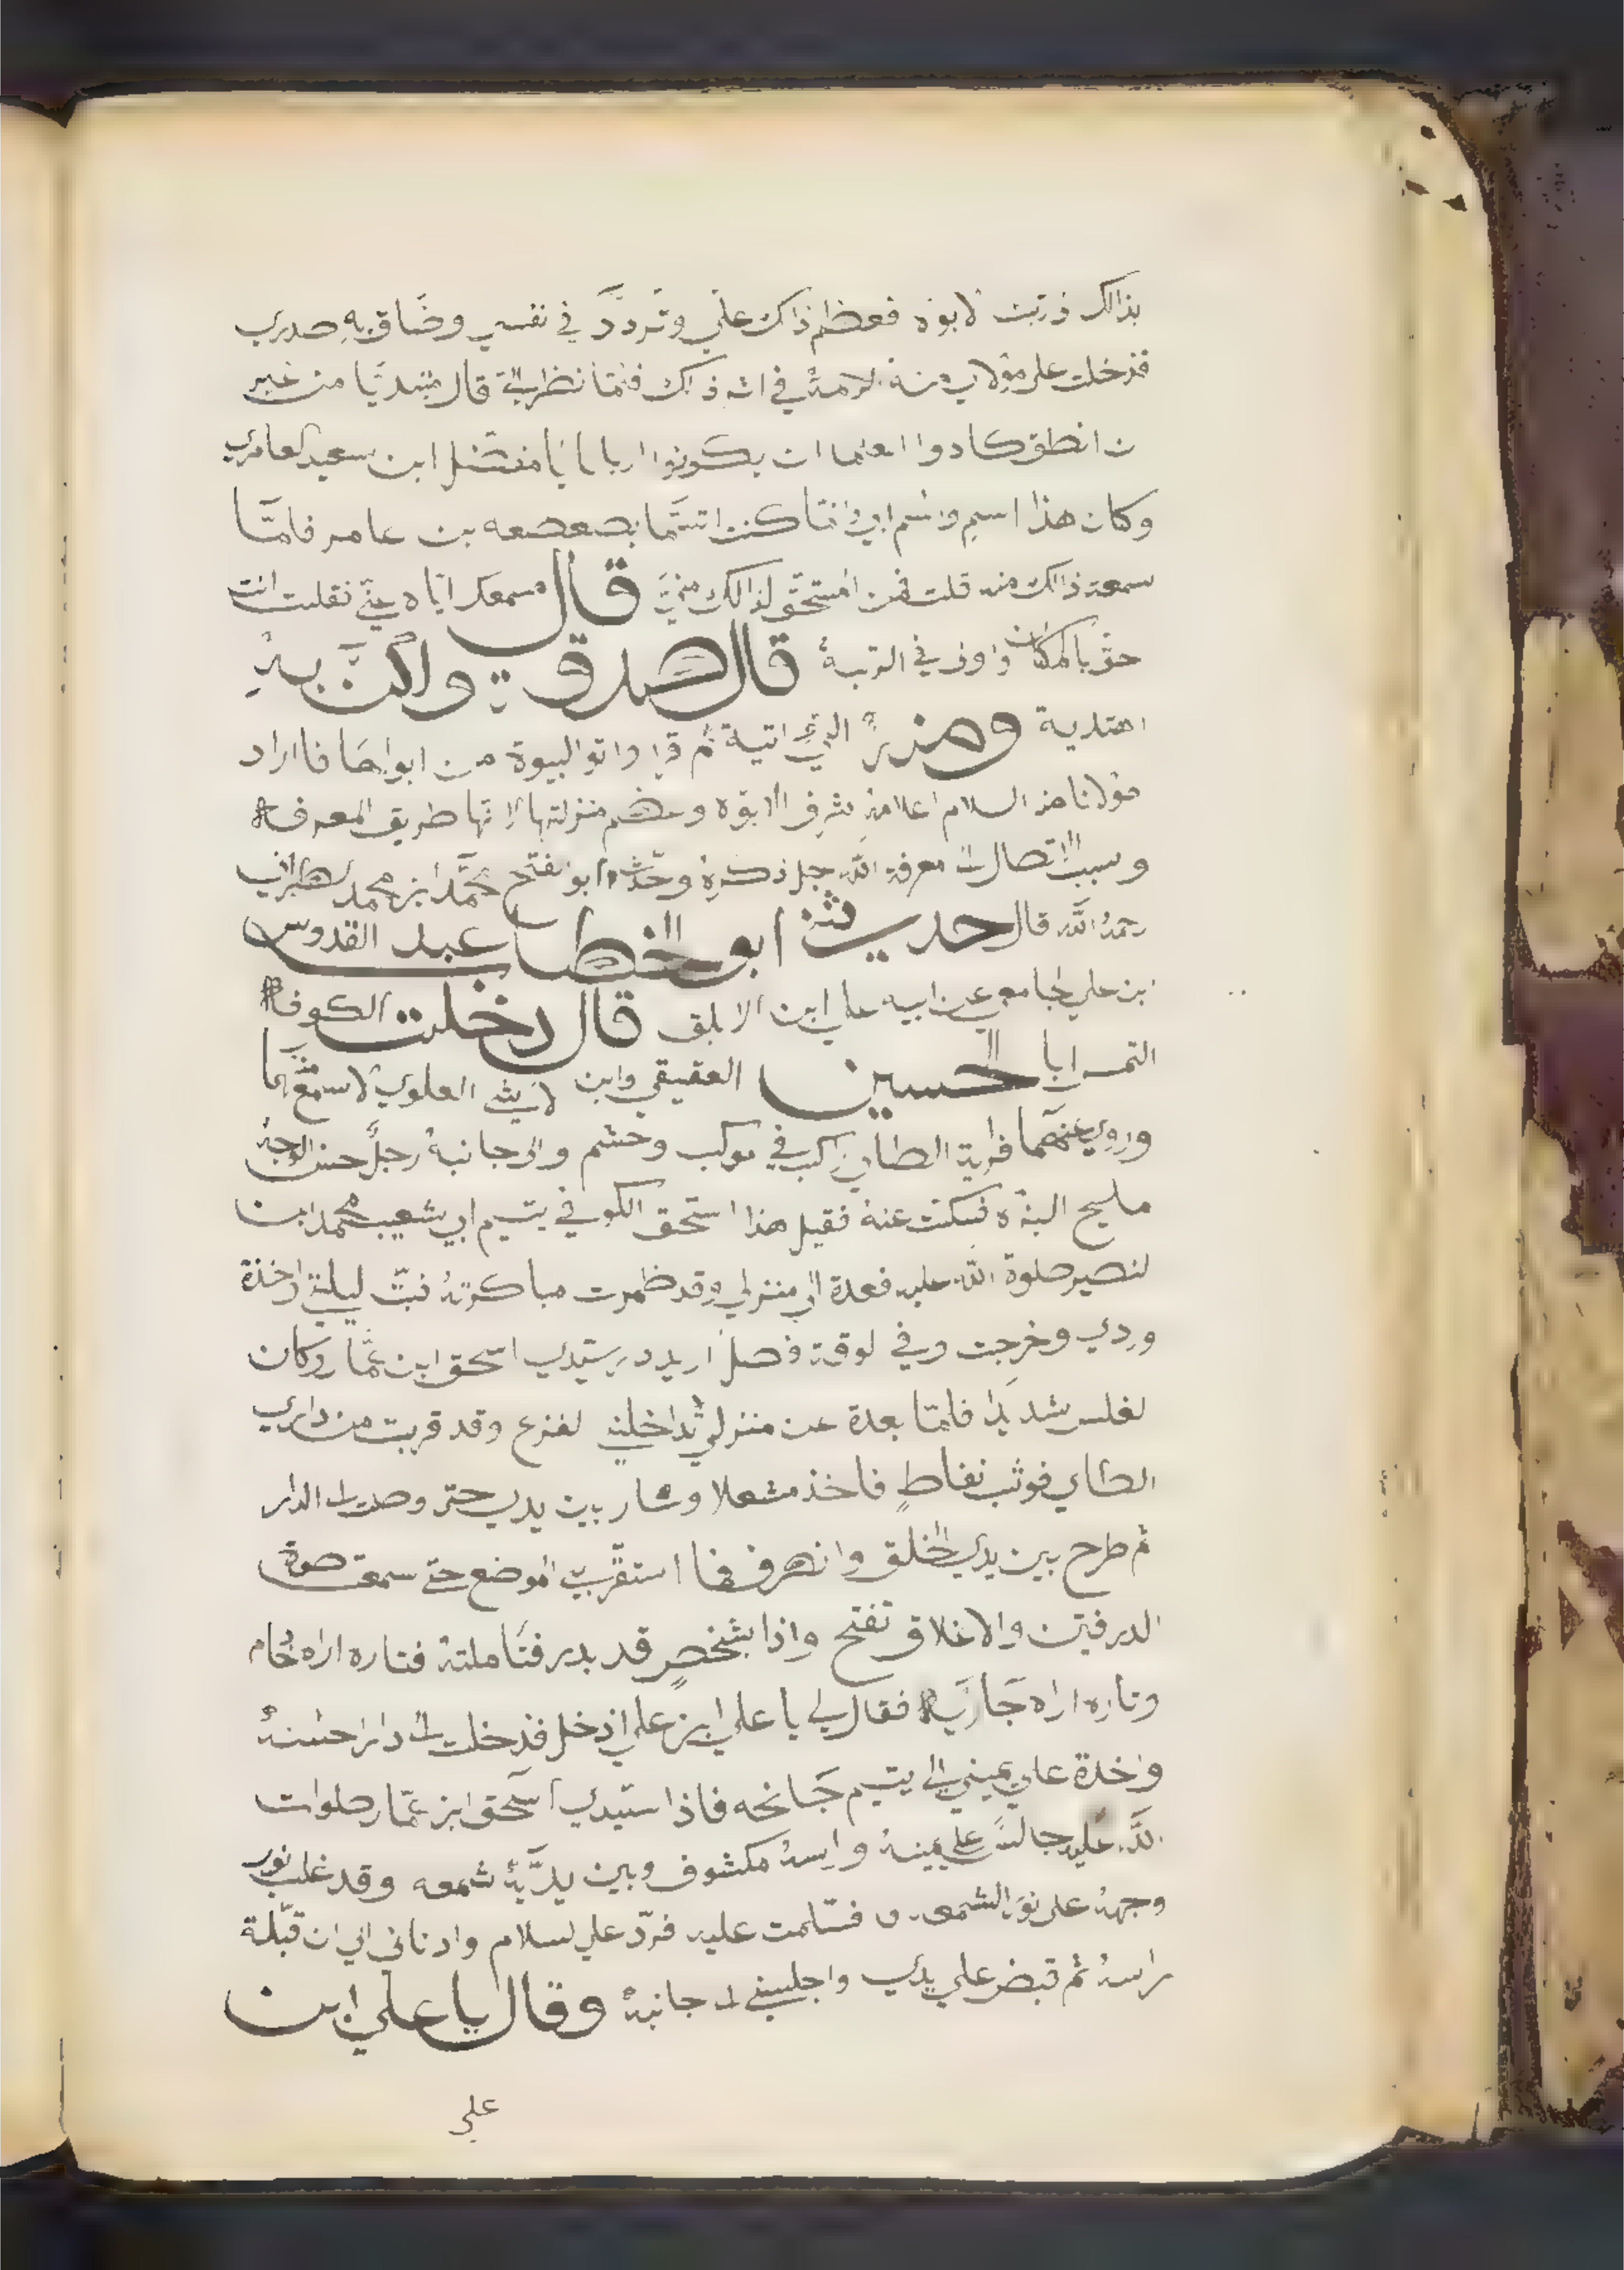 بذالك ذرّيت لابوه فعظم ذاك علي وتردّد في نفسي وضاق به صدري
فدخلت على مولاي منه السلام في اثر ذاك فلمّا نظر اليّ قال مبتديًا من غير
ان انطق كادوا العلما ان يكونوا اربابا يا مفضّل ابن سعيد العامري
وكان هذا اسمي واسم ابي وانما كنت اتسمّا بصعصعه بن عامر فلمّا
سمعة ذالك منه قلت فمن استحقّ لذالك منيّ قال مسمعك ايّاه عنّي فقلت انت
حقّ بالمكان واولى في الرتبة قال صدقت ولكنّ به
اهتدية ومنه اليّ اتية ثم قرا واتو البيوة من ابوابها فاراد
مولانا منه السلام اعلامه شرف الابوّه وعظم منزلتها لانها طريق المعرفة
وسبب الاتصال الى معرفة الله جل ذكره وحدّث ابو الفتح محمّد ابن محمد
رحمه الله قال حديث ابو الخطاب عبد القدوس
بن علي الجامعي عن ابيه علي ابن الابلق قال دخلت الكوفة
التمس ابا الحسين العقيقي وابن العلوي لاسمع
وروي عنهما فرية الطاي راكب في موكب وحشم والى جانبه رجلٌ حسن الوجه
مليح البزه فسالت عنه فقيل هذا اسحق الكوفي يتيم ابي شعيب محمد ابن
لنصير صلوة الله عليه فعدة الى منزلي وقد ظمرت مباكرته فبتّ ليلتي واخذة
وردي وخرجت وفي لوقت فصل اريد دار سيّدي اسحق ابن عمّار وكان
لغلس شديدًا فلمّا بعدة عن منزلي تداخلني لفزع وقد قربت من داري
الطاي فوثب نفاطٍ فاخذ مشعلا وسار بين يدي حتى وصلت الى الدار
ثم طرح بين يدي الخلق وانصرف فما استقرّ بي الموضع حتى سمعت صوة
الدرفتين والاغلاق تفتح واذا بشخصٍ قد بدر فتأملته فتاره اراه غلام
وتاره اراه جاريه فقال لي يا علي ابن علي ادخل فدخلت الى دار حسنة
واخذة علي يميني الى يتيم جانحه فاذا سيّدي اسحق ابن عمّار صلوات
الله عليه جالسً علي يمينه وراسه مكشوف وبين يديه شمعه وقد غلب نور
وجهه على نور الشمعه فسلمت عليه فردّ علي لسلام وادناني الي ان قبّلة
راسه ثم قبض علي يدي واجلسني الى جانبه وقال يا علي ابن
علي